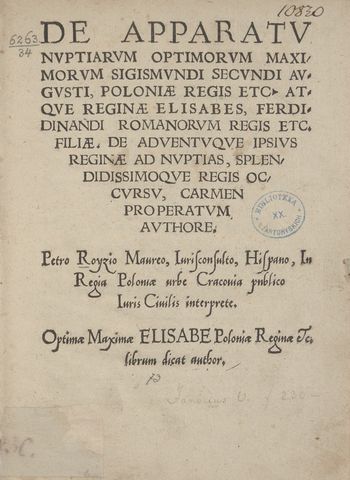 10830
6263
34
DE APPARATV
NVPTIARVM OPTIMORVM MAXI-
MORVM SIGISMVNDI SECVNDI AV-
GVSTI, POLONIÆ REGIS ETC. AT-
QVE REGINÆ ELISABES, FERDI-
DINANDI ROMANORVM REGIS ETC.
FILIÆ. DE ADVENTVQVE IPSIVS
REGINÆ AD NVPTIAS, SPLEN-
DIDISSIMOQVE REGIS OC-
CVRSV, CARMEN
PROPERATVM
AVTHORE.
BIBLIOTEKA
XX.
Petro Royzio Maureo, Iurisconsulto, Hispano, In
Regia Poloniæ urbe Cracouia publico
Iuris Civilis interprete.
Optimæ Maximæ ELISABE Poloniæ Reginæ Etc.
librum dicat author.